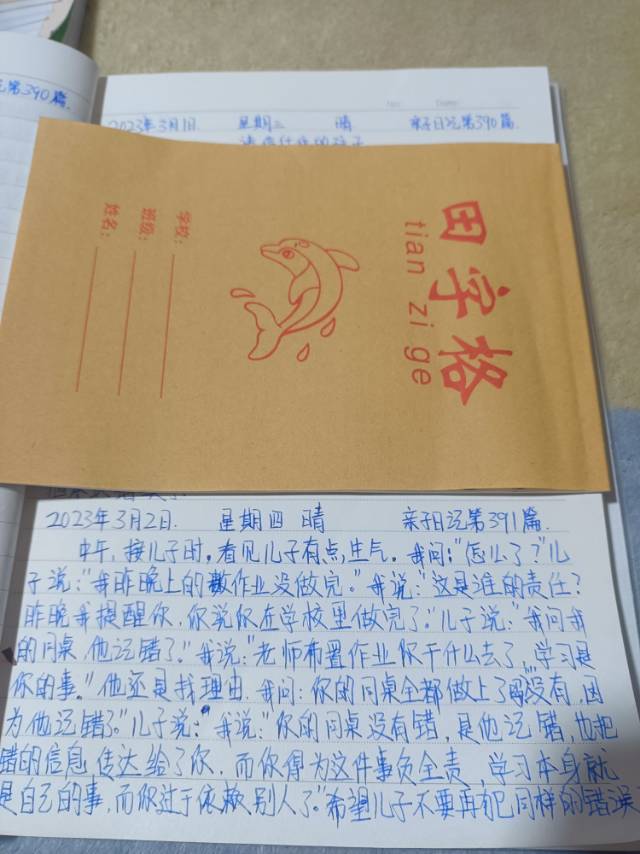 记第390篇.
2023年3月1日 星期三 晴 亲子日记第390篇.
田字格
tian zi ge
学校:
班级:
姓名:
2023年3月2日. 星期四 晴 亲子日记第391篇.
中午,接儿子时,看见儿子有点生气。我问:"怎么了?"儿
子说:"我昨晚上的数作业没做完。"我说:"这是谁的责任?
昨晚我提醒你,你说你在学校里做完了。"儿子说:"我问我
的同桌,他记错了。"我说:"老师布置作业你干什么去了,学习是
你的事。"他还是找理由.我问:你的同桌全都做上了没有,因
为他记错了。"儿子说:"我说:"你的同桌没有错,是他记错,也把
错的信息传达给了你,而你得为这件事负全责,学习本身就
是自己的事,而你过于依赖别人了。"希望儿子不要再犯同样的错误